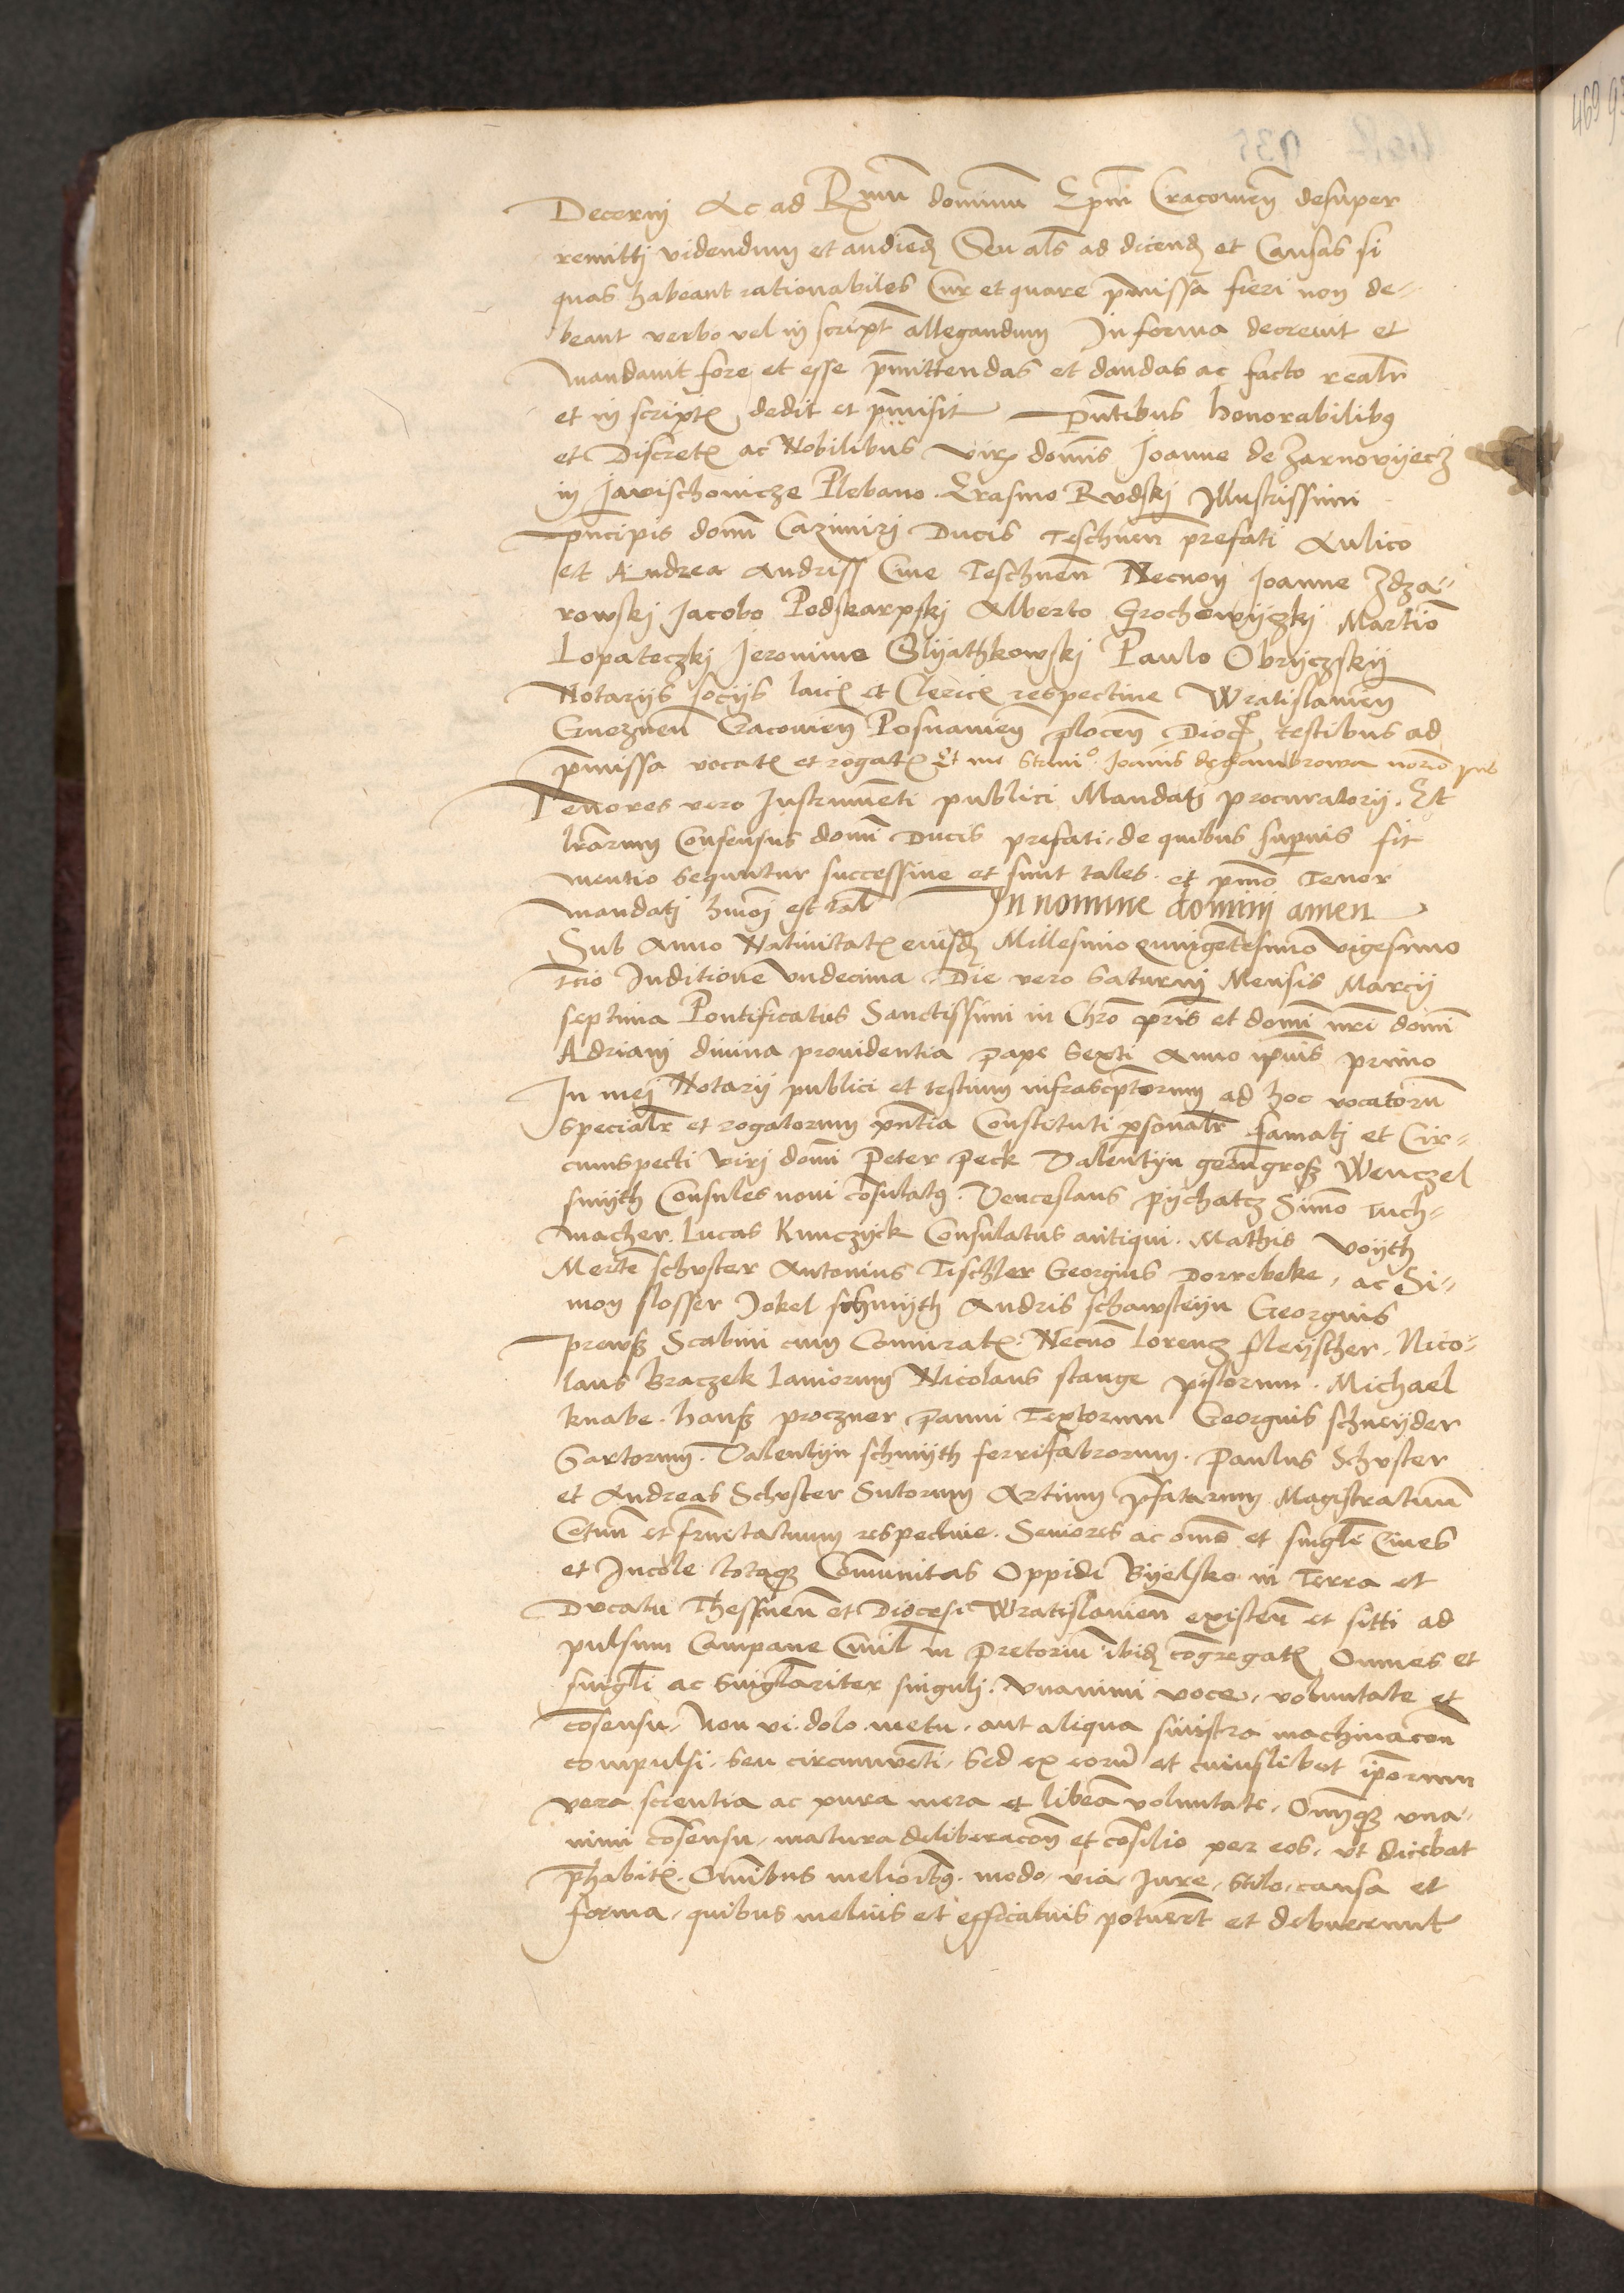 Decernj Ac ad Rmum dominum Epm Cracouien desuper
remittj videndum et audiend Seu als ad dicend et Causas si
quas habeant rationabiles Cur et quare pmissa fieri non de-
beant verbo vel in script allegandum In forma decreuit et
mandauit fore et esse pmittendas et dandas ac facto realr
et in script dedit et pmisit Pntibus honorabilibus
et Discret ac Nobilibus vir domis Joanne de Zarnovyecz
in Jawischowicze Plebano Erasmo Rudskj Illustrissimi
pncipis domi Cazimirj Ducis Teschnen prefati Aulico
et Andrea Andriss Ciue Teschnen Necnon Joanne Zdza-
rowskj Jacobo Podskarpskj Alberto Grochowyczkj Martio
Lopateczkj Jeronimo Slyathkowskj Paulo Obryczskij
Notarijs socijs laic et Cleric respectiue Wratislauien
Gneznen Cracouien Posnanien plocen Dioc testibus ad
pmissa vocat et rogat Et me Joanis de Dambrowa norio
Tenores vero Instrumenti publici Mandatj procuratorij. Et
lrarum Consensus domi Ducis prefati de quibus superius fit
mentio sequntur successiue et sunt tales et pmo Tenor
mandatj hmoi est tal In nomine dominj amen
Sub Anno Natiuitat eiusd Millesimo quingetesimo vigesimo
tcio Inditione vndecima Die vero Saturnj Mensis Marcij
septima Pontificatus Sanctissimi in Chro pris et domi nri domi
Adriani diuina prouidentia pape Sexti Anno ipsius primo
In mej Notarij publici et testium infrascptorum ad hoc vocatorum
specialr et rogatorum pntia Constituti psonalr famatj et Cir-
cumspecti virj domi Peter Peck Valentijn gerngroß Wenczel
smijth Consules noui cosulatus. Venceslaus pijchatz Simo Tuch-
macher. Lucas Kunczyck Consulatus antiqui. Mathis voijth
Merte schuster Antonius Tischler Georgius Dorrebeke. ac Si-
mon slosser Jokel schmijth Andris schawsteijn Georgius
prewß Scabini cum Coniurat. Necno Lorencz fleijscher. Nico-
laus Braczek laniorum Nicolaus stange pistorum. Michael
knabe. hanß proczner panni Textorum Georgius schneijder
Sartorum. Valentijn schmijth ferrifabrorum. Paulus Schuster
et Andreas Schuster Sutorum Artium pfatarum Magistratuum
Cetuu et frucitatuum respectiue. Seniores ac oms et singli Ciues
et Incole totaque Communitas Oppidi Byelsko in Terra et
Ducatu Thessinen et Diocesi Wratislauien existen et sitti ad
pulsum Campane Ciuil in pretorium ibid congregat Omnes et
singli ac singlariter singulj. vnanimi voce, voluntate et
cosensu, Non vi. dolo. metu. aut aliqua sinistra machinacon
compulsi. seu circumueti. sed ex eorum et cuiuslibet ipsorum
vera scientia ac pura mera et libera voluntate. Omque vna-
nimi cosensu, matura deliberacon et cosilio per eos. vt dicebat
phabit. Omibus melioribus. modo, via, Jure, stilo, causa et
forma, quibus melius et efficatius potuert et debuerunt